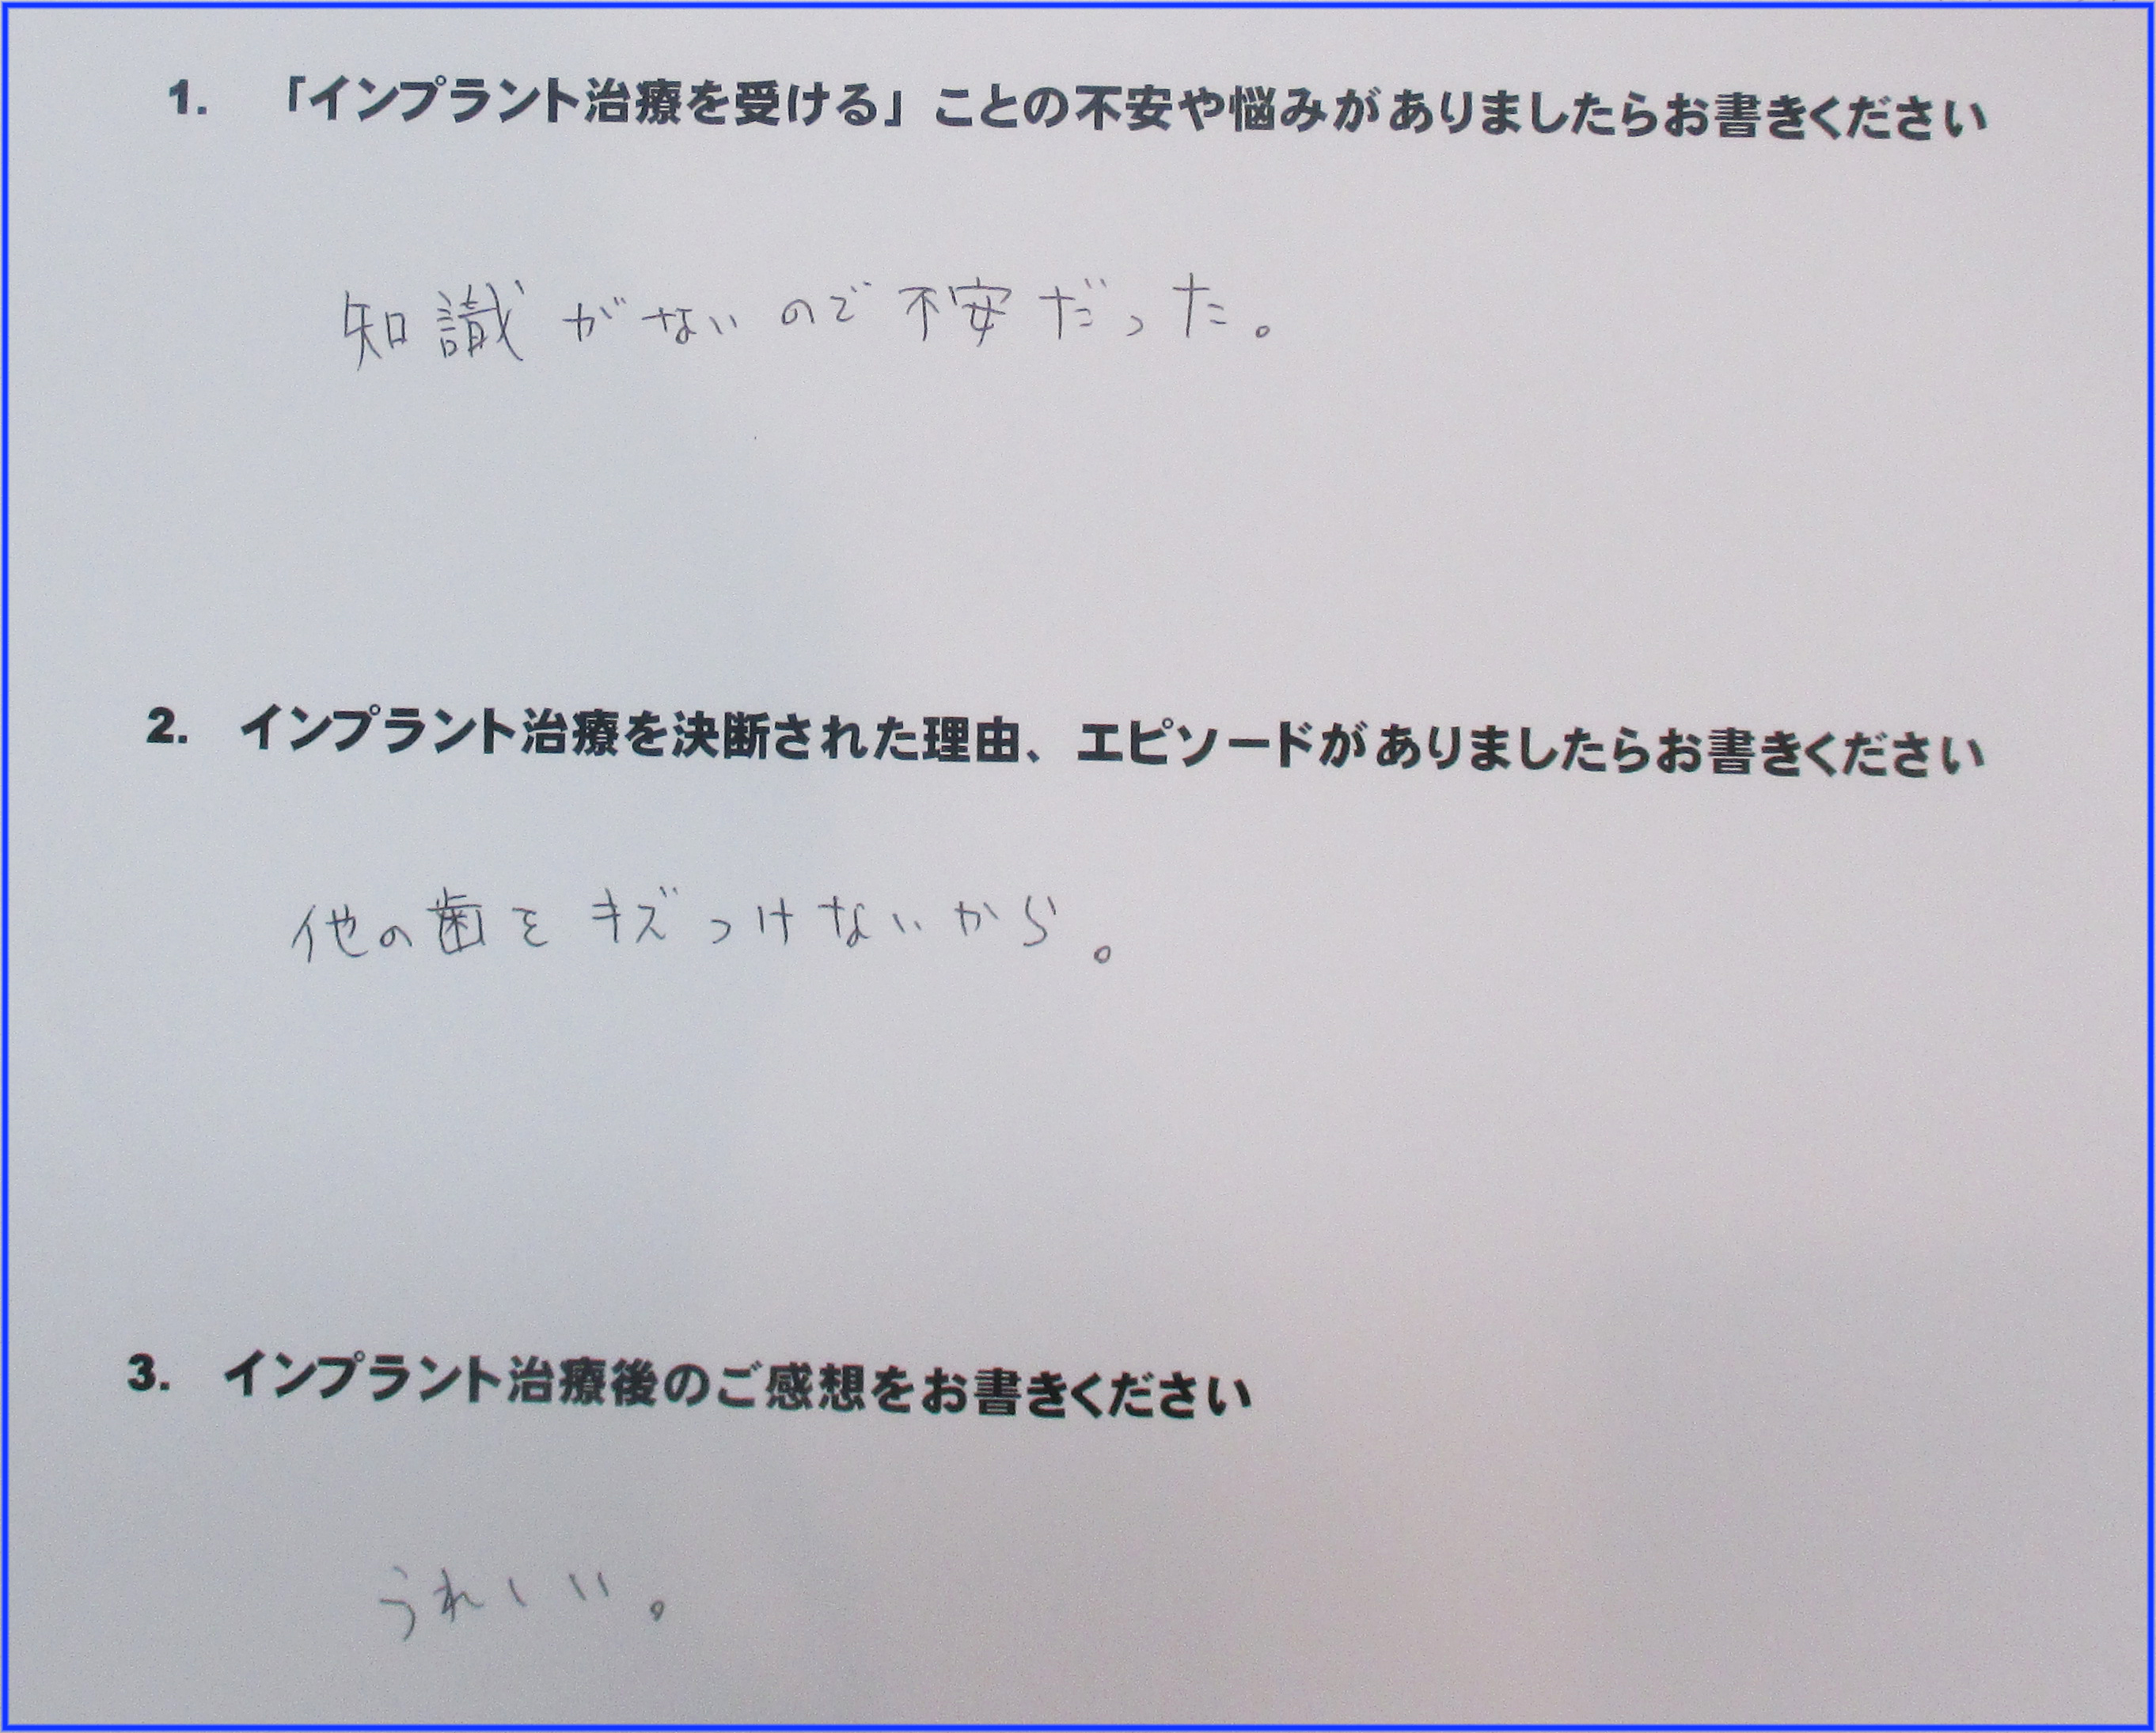 1. 「インプラント治療を受ける」ことの不安や悩みがありましたらお書きください
知識がないので不安だった。
2. インプラント治療を決断された理由、エピソードがありましたらお書きください
他の歯をキズつけないから。
3. インプラント治療後のご感想をお書きください
うれしい。